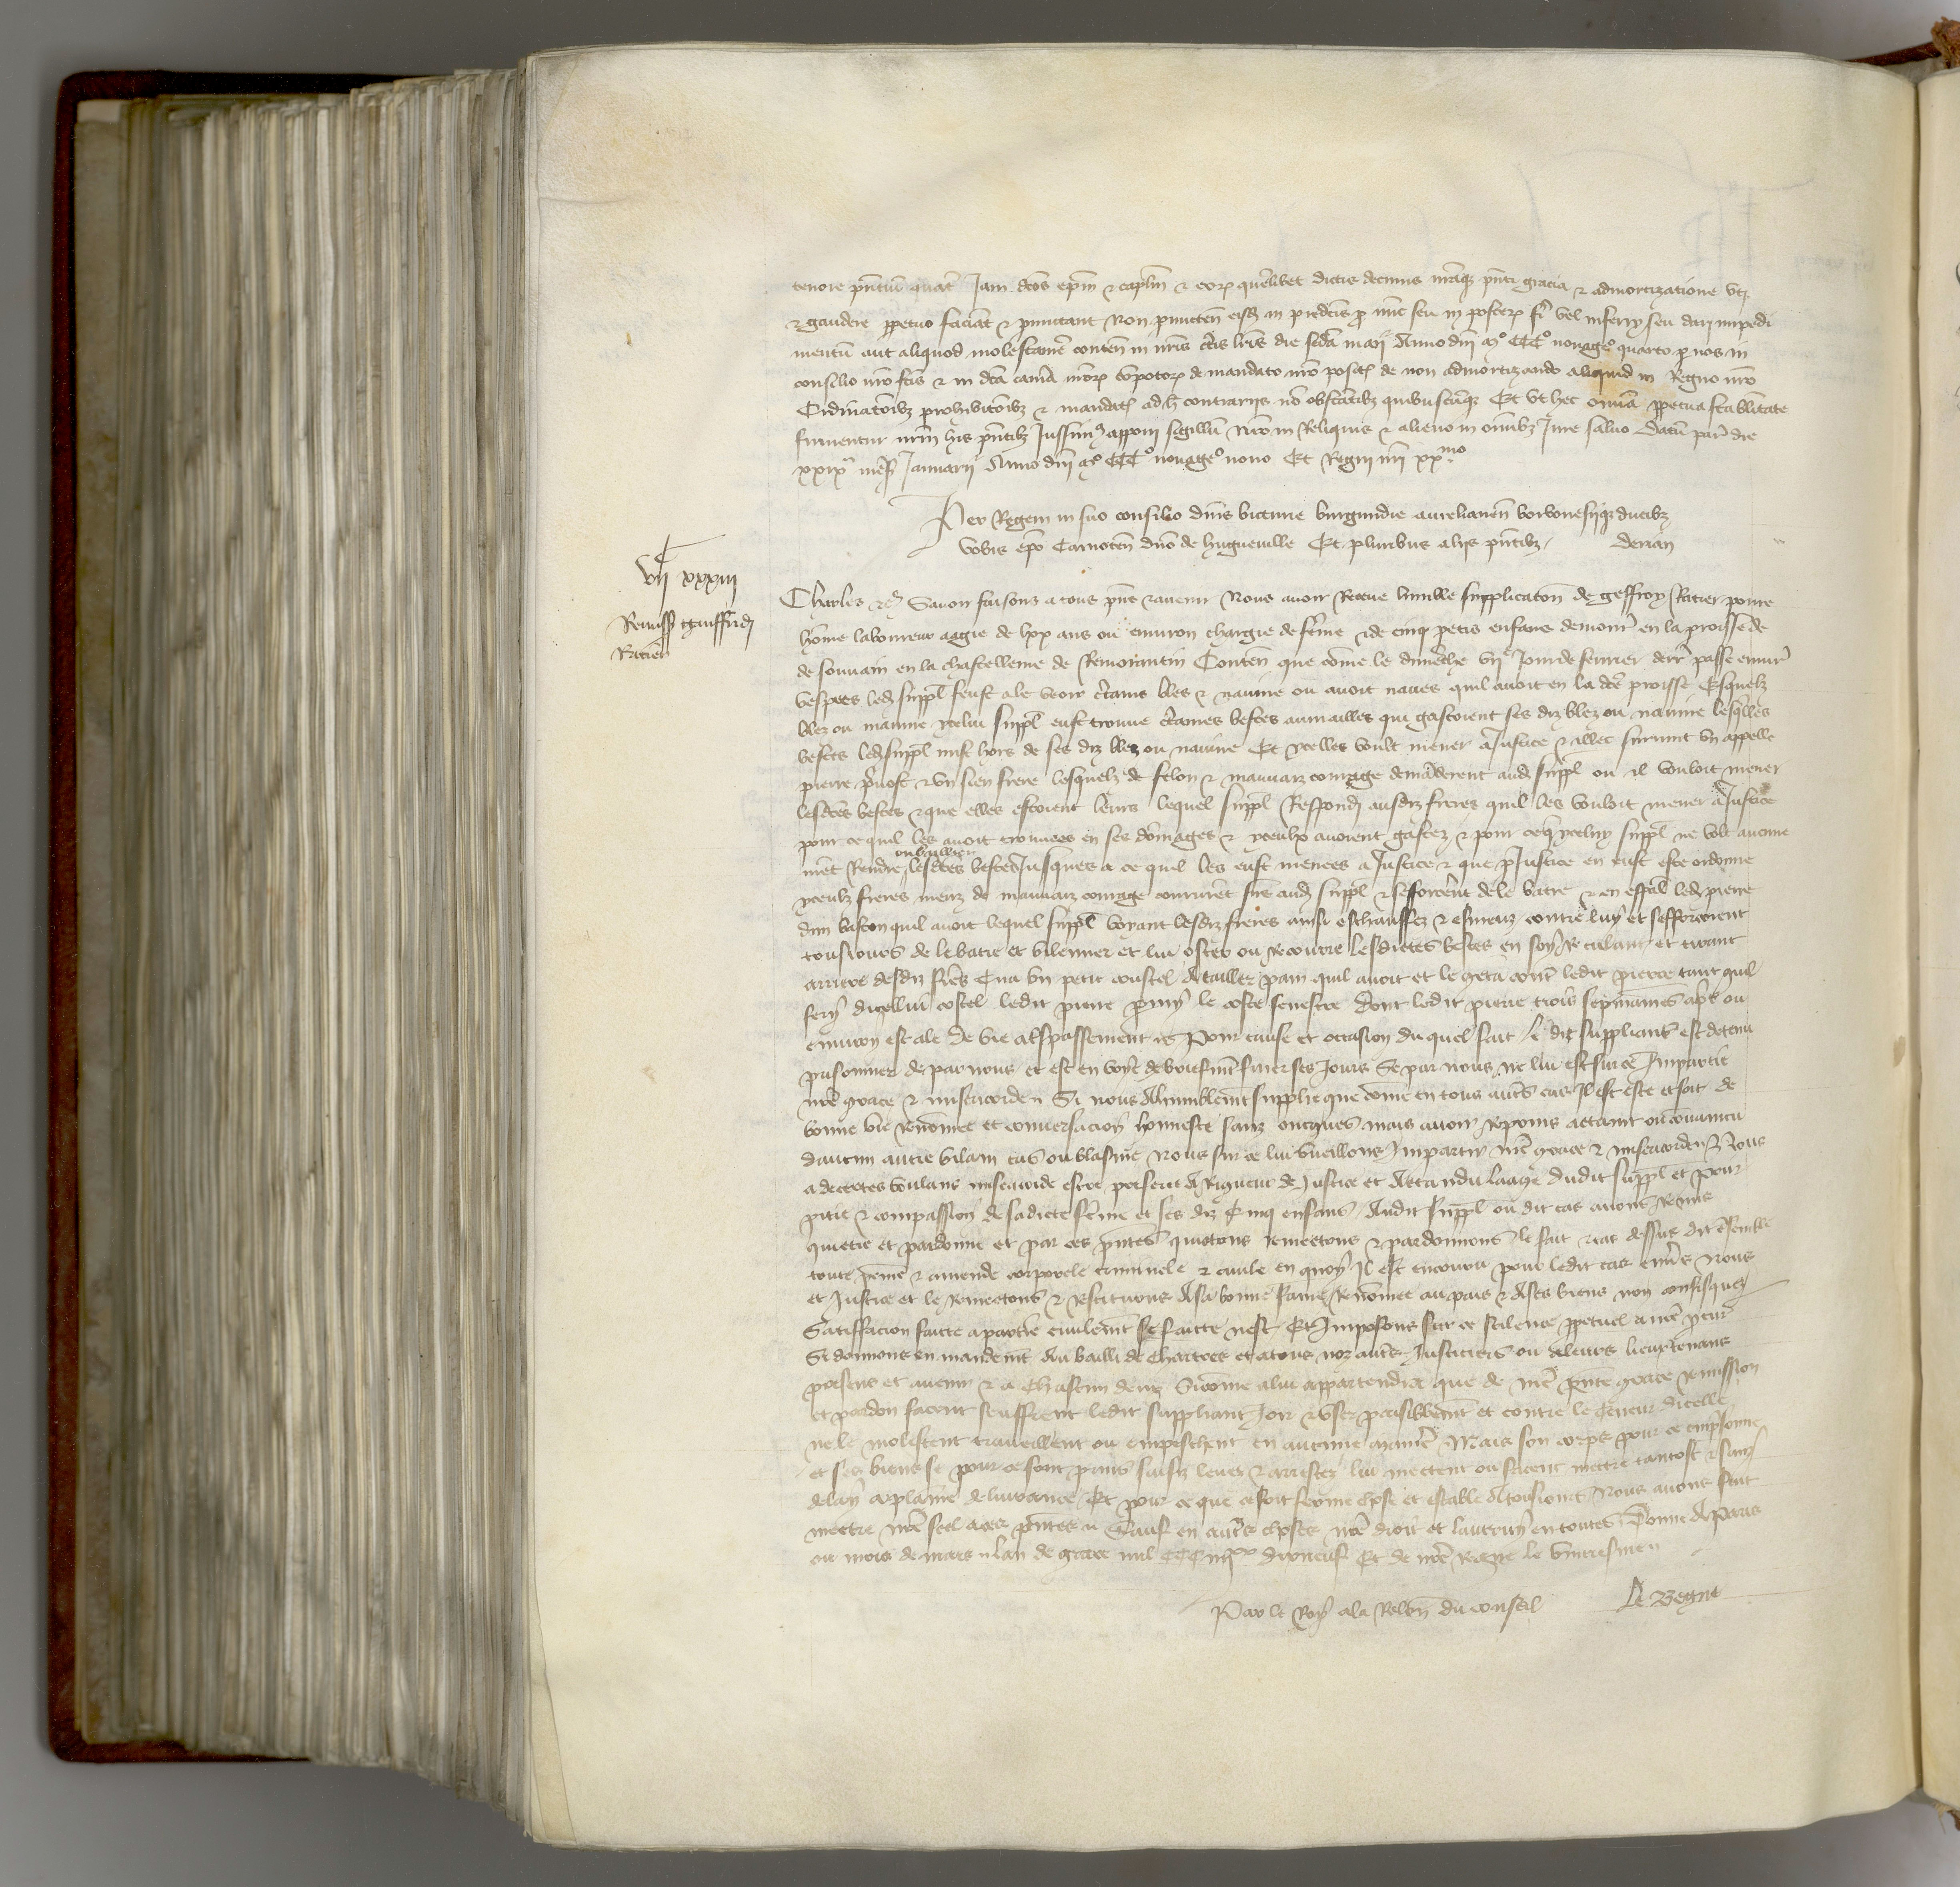 tenore pntiu quat Jam dcos epm & caplm & eor quelibet dictis decimis nraq pnti gracia & admortizatione uti
& gaudere ppetuo faciat & pmittant Non pmitten eisd in predcis pro nunc seu in poster fi vel inferry seu dari impedi
mentu aut aliquod molestame conten in nris ctis lris die scda maii Anno dni mo CCCo nonageo quarto p nos in
consilio nro fcis & in dca cama nror compotor de mandato nro posit de non admortizando aliquid in Regno nro
Ordinatoibz prohibitoibz & mandat ad h contrariis no obstatibz quibuscuqz Et vt hec omia ppetua stabilitate
firmentur nrm his pntibz Jussim apponi sigillu Nro in Reliquis & alieno in omibz Jure saluo Datu par die
xxixa mes Januarii Anno dni mo CCCo nonageo nono Et Regni nri xxmo
Per Regem in suo consilio dnis biturie burgundie aurelianen borbonesiiqz ducibz
vobis epo Carnoten dno de hugueuille Et pluribus aliis pntibz / derian
vii c xxxiii
Remiss gauffridi
Ratier
Charles &c Sauoir faisons a tous pns & auenir Nous auoir Receue humble supplicaton de geffroy Ratier poure
home laboureur aagie de lxx ans ou enuiron chargie de feme & de cinq petis enfans demour en la proisse de
de souuain en la chastellenie de Remorantin Conten que come le dimeche vije Jour de feurier derr passe enuir
vespres led suppl feust ale veoir ctains bles & nauine ou auoit naues quil auoit en la dce proisse Esquelz
blez ou nauine ycelui suppl eust trouue ctaines bestes aumailles qui gastoient ses diz blez ou nauine lesqlles
bestes led suppl mist hors de ses diz blez ou nauine Et ycelles voult mener a Justice & illec suruint vn appelle
pierre puost & vn sien frere lesquelz de felon & mauuaiz courage demaderent aud suppl ou il vouloit mener
lesdces bestes & que elles estoient leurs lequel suppl Respondi ausdiz freres quil les vouloit mener a Justice
pour ce quil les auoit trouuees en ses domages & yceulx auoient gastez & pour ceq ycelui suppl ne volt aucune
met Rendre ou baillier lesdces bestes Jusques a ce quil les eust menees a Justice & que p Justice en eust este ordonne
yceulz freres meuz de mauuaiz courage coururet sus aud suppl & sefforcerent de le batre & en espal led pierre
dun baston quil auoit lequel suppl voyant lesdiz freres ainsi eschauffez & esmeuz contre luy et sefforcoient
tousiours de le batre et vilenner et lui oster ou Recourre lesdictes bestes en soy Reculant et tirant
arriere desdiz fres tira vn petit coustel a tailler pain quil auoit et le geta cont ledit pierre tant quil
fery dicellui costel ledit pierre pmy le coste senestre Dont ledit pierre trois sepmaines apres ou
enuiron est ale de vie a trespassement Pour cause et occasion du quel fait le dit suppliant est detenu
prisonnier de par nous et est en voye de briefmet finer ses Jours Se par nous ne lui est sur ce Impartie
nre grace & misericorde Si nous a humblemt supplie que come en tous autres cas Il est este et soit de
bonne vie Renomee et conuersacion honneste sanz oncques mais auoir Repris actaint ou conuaincu
daucun autre vilain cas ou blasme Nous sur ce lui vueillons Impartir nre grace & misericorde Nous
adecertes voulans misericorde estre preferee a Rigueur de Justice et attendu laage dudit suppl et pour
pitie & compassion de sadicte feme et ses diz Cinq enfans Audit suppl ou dit cas auons Remis
quictie et pardonne et par ces pntes quictons remectons & pardonnons le fait & cas dessus dit ensemble
toute peine & amende corporele criminele & ciuile en quoy Il est encouru pour ledit cas enus Nous
et Justice et le remectons & restituons a sa bonne fame Renomee au pais & a ses biens non confisquez
Satiffacion faicte a partie ciuilemt se faicte nest Et Imposons sur ce scilence ppetuel a nre pcur
Si donnons en mandemt Au bailli de Chartres et a tous noz autres Justiciers ou a leurs lieuxtenans
presens et auenir & a Chascun deulz Si come a lui appartendra que de nre pnte grace remission
et pardon facent seuffrent ledit suppliant Joir & vser paisiblemt et contre le teneur dicelle
ne le molestent trauaillent ou empeschent en aucune maniere Mais son corps pour ce emprisonne
et ses biens se pour ce sont prins saisiz leuez & arrestez lui mectent ou facent mettre tantost & sans
delay a plaine deliurance Et pour ce que ce soit ferme chose et estable a tousiours Nous auons fait
mettre nre seel a ces pntes Sauf en autres choses nre droit et lautruy en toutes Donne A Paris
ou mois de mars lan de grace mil CCC iiijxx dixneuf Et de nre regne le vintiesme
Par le Roy a la Relon du conseil Le Begue